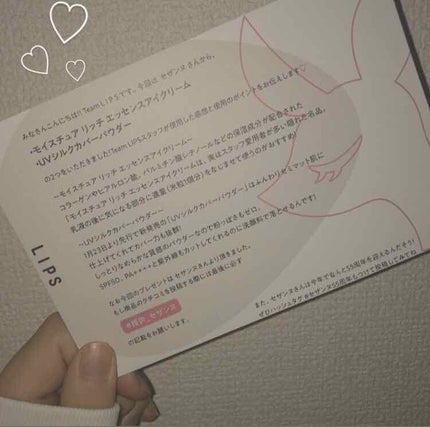 みなさんこんにちは!! Team LIPSです。今回は セザンヌ さんから、
・モイスチュア リッチ エッセンスアイクリーム
・UVシルクカバーパウダー
の2つをいただきました!Team LIPSスタッフが使用した感想と使用のポイントをお伝えします♡
〜モイスチュア リッチ エッセンスアイクリーム〜
コラーゲンやヒアルロン酸、パルミチン酸レチノールなどの保湿成分が配合された
「モイスチュア リッチ エッセンスアイクリーム」は、実はスタッフ愛用者が多い隠れた名品。
乳液の後に気になる部分に適量(米粒1個分)をなじませて使うのがおすすめ!
〜UVシルクカバーパウダー〜
1月23日より先行で新発売の「UVシルクカバーパウダー」はふんわりセミマット肌に
仕上げてくれてカバー力も抜群!
しっとりなめらかな質感のパウダーなので粉っぽさもゼロ。
SPF50、PA++++と紫外線もカットしてくれるのに洗顔料で落とせるんです!
なお今回のプレゼントは セザンヌさんより頂きました。
もし商品のクチコミを投稿する際には最後に必ず
#提供_セザンヌ
の記載をお願いします。
また、セザンヌさんは今年でなんと55周年を迎えるんだそう!
ぜひハッシュタグ #セザンヌ55周年 もつけて投稿してみてね
LIPS